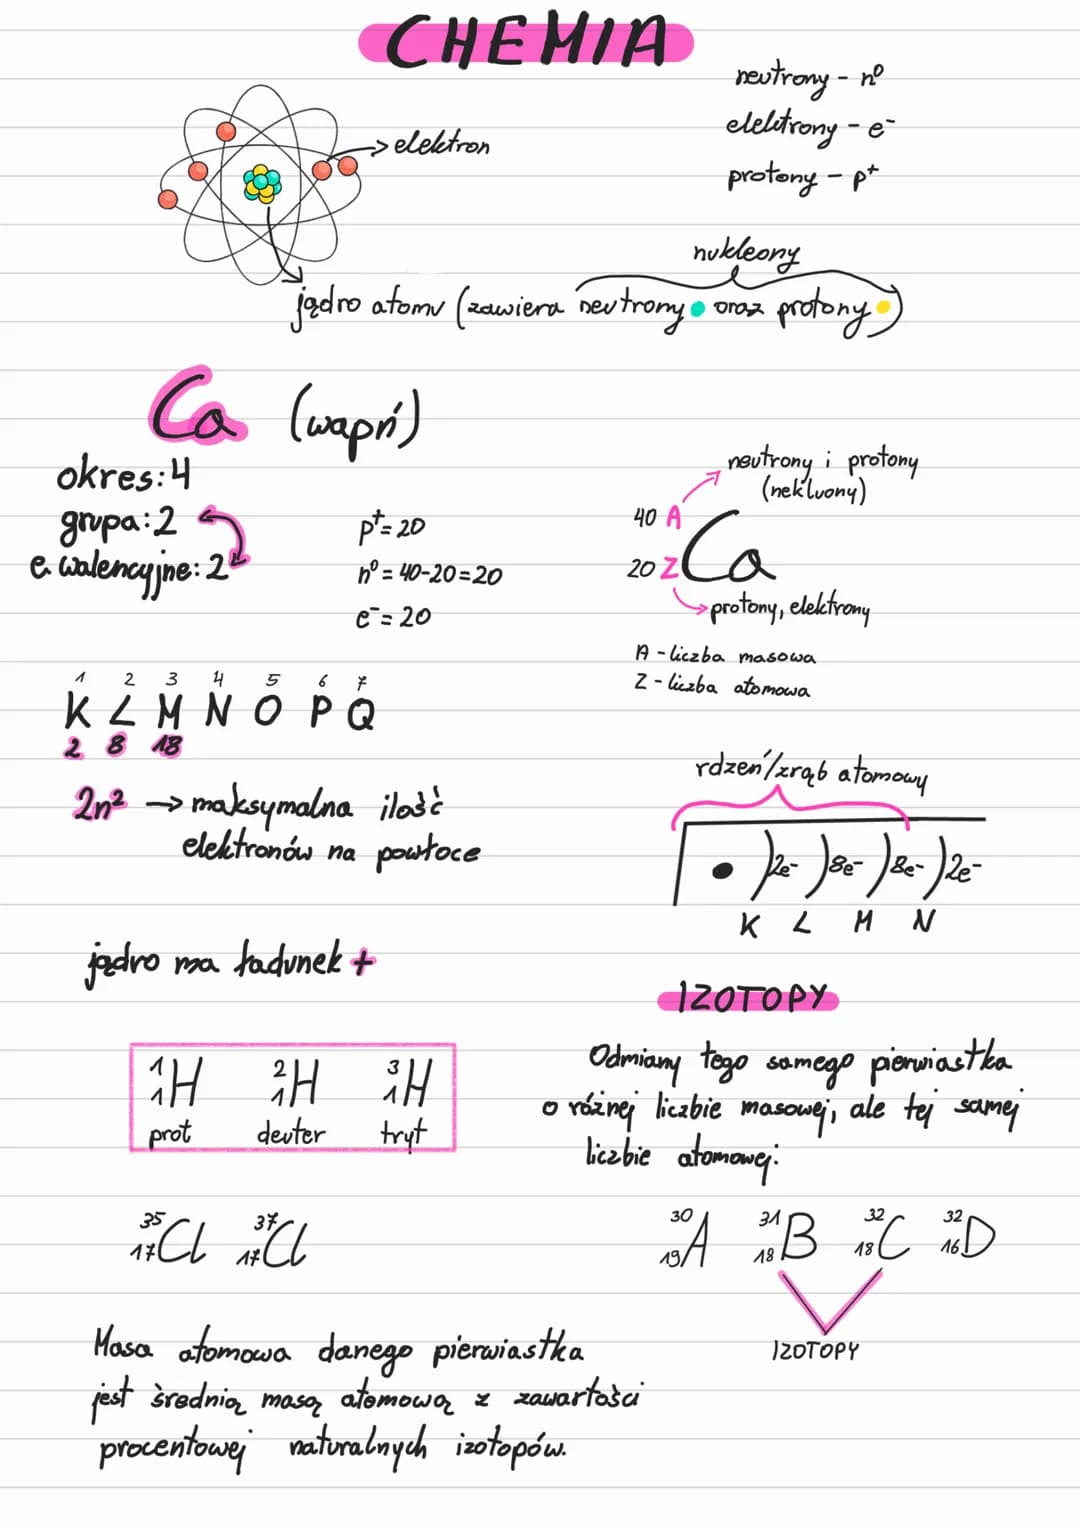 CHEMIA
neutrony - n⁰
elektrony - e⁻
protony - p⁺
elektron
nukleony
jądro atomu (zawiera neutrony oraz protony)
Ca (wapń)
okres: 4
grupa: 2
e. walencyjne: 2
p⁺ = 20
n⁰ = 40-20 = 20
e⁻ = 20
neutrony i protony
(nekluony)
40 A
Ca
20 Z
protony, elektrony
A - liczba masowa
Z - liczba atomowa
1 2 3 4 5 6 7
K L M N O P Q
2 8 18
2n² → maksymalna ilość
elektronów na powłoce
rdzeń/zrąb atomowy
)2e⁻ )8e⁻ )8e⁻ )2e⁻
K L M N
jądro ma ładunek +
IZOTOPY
Odmiany tego samego pierwiastka
o różnej liczbie masowej, ale tej samej
liczbie atomowej:
¹₁H ²₁H ³₁H
prot deuter tryt
³⁵₁₇Cl ³⁷₁₇Cl
³⁰₁₉A ³¹₁₈B ³²₁₈C ³²₁₆D
IZOTOPY
Masa atomowa danego pierwiastka
jest średnią masą atomową z zawartości
procentowej naturalnych izotopów.